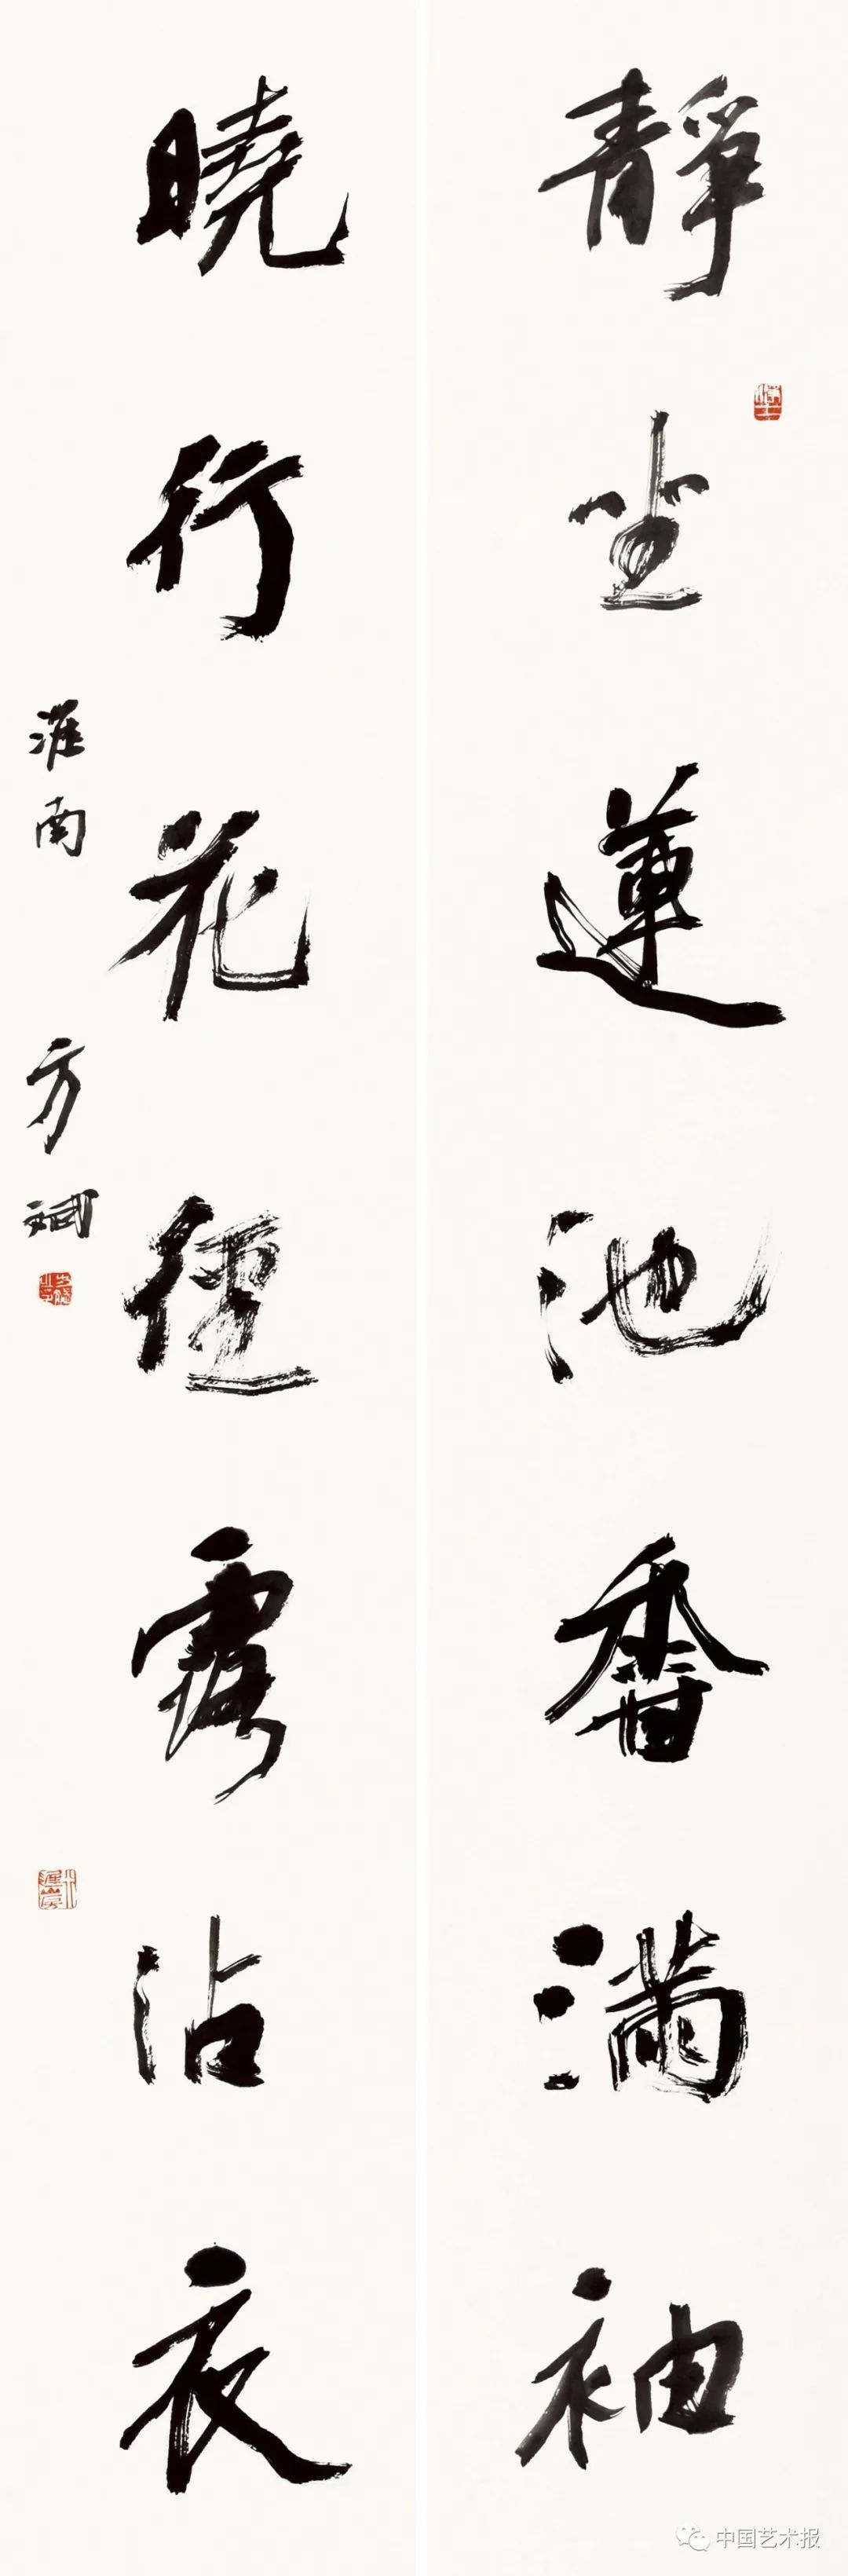 靜坐蓮池香滿袖
曉行花徑露沾衣
淮南 方斌
中国艺术报